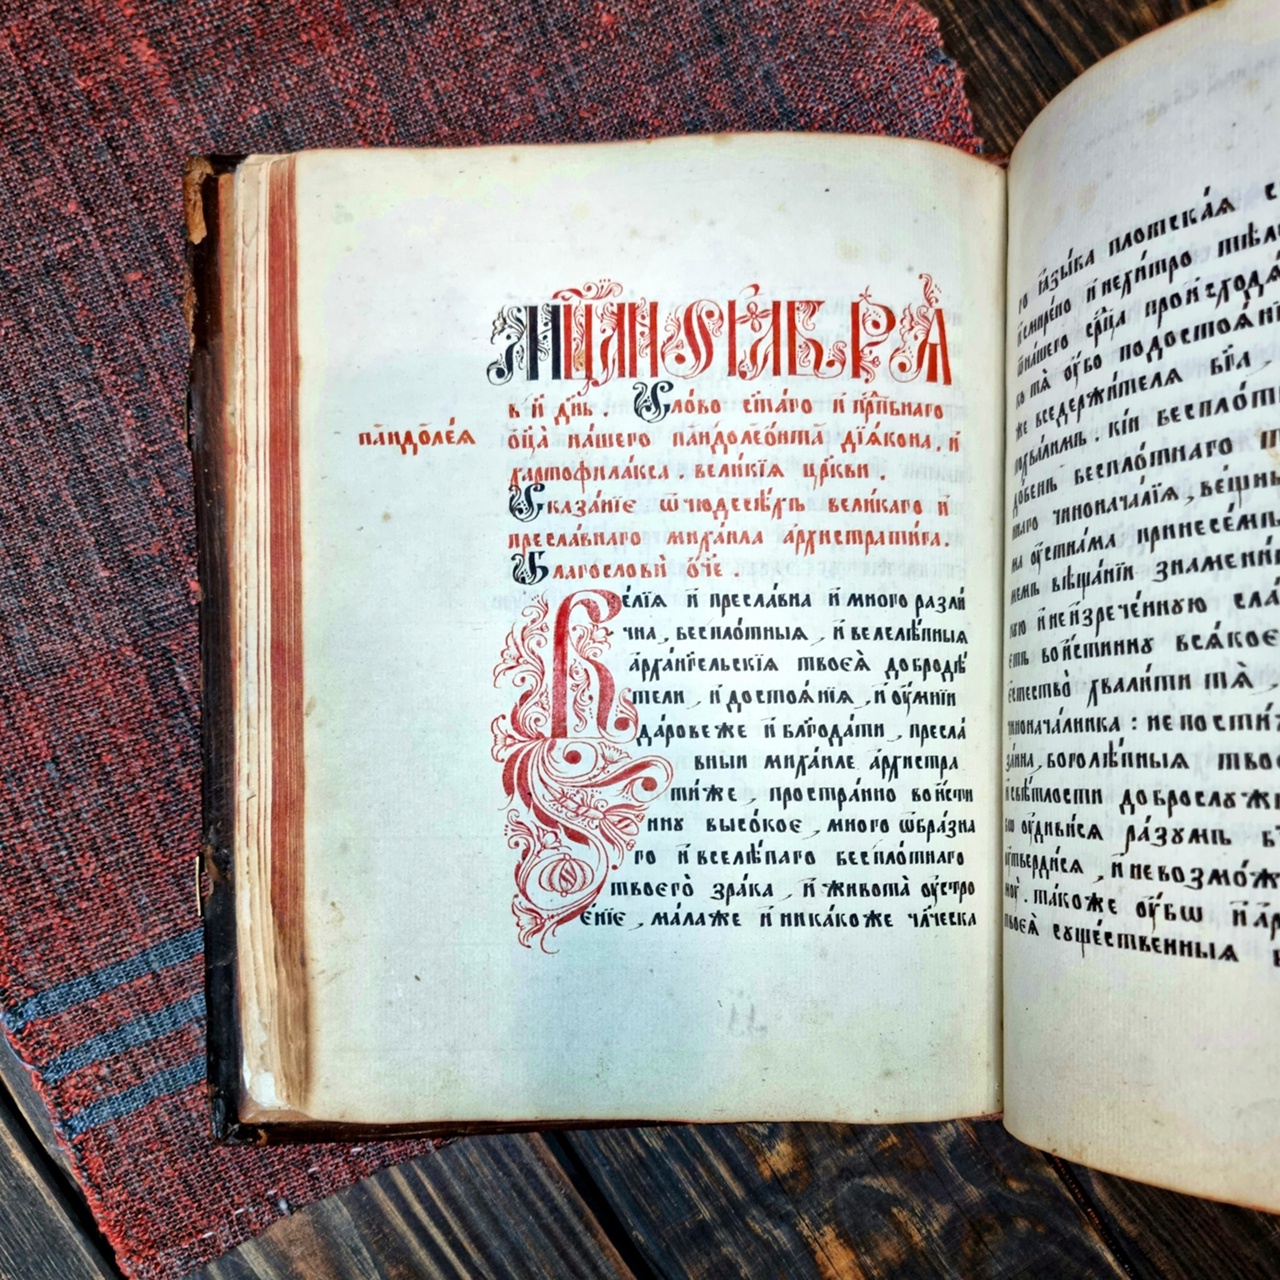 мц҃а ноѧбрѧ
в҃ и҃ дн҃ь Сло́во ст҃а́го и҆ прпⷣбнаго
па҆ндоле́ѧ
ѻ҆ц҃а̀ на́шего па҆ндолео́нта дїа́кона. и҆
хартофи́лакса. вели́кїѧ цр҃кви.
Сказа́нїе ѿ чюдесѣ́хъ вели́каго и҆
пресла́внаго михаи́ла а҆рхистрати́га.
Благословѝ ѻ҆́ч҃е.
Ве́лїѧ и҆ пресла́вна и҆ мно́го разли́
чна, беспло́тныѧ, и҆ велелѣ́пныѧ
а҆рха́нгельскїѧ твоеѧ̀ добродѣ́
тели, и҆ достоѧ́нїѧ, и҆ оу҆́мнїи
да́рове же и҆ бл҃года́ти, пресла́
вныи михаи́ле а҆рхистра
ти́же, простра́нно вои́сти
нну высо́кое, мно́го ѡ҆бра́зна
го и҆ вселѣ́паго беспло́тнаго
твоего̀ зра́ка, и҆ живота̀ оу҆стро
е́нїе, ма́ла же и҆ ника́коже чл҃ческа
го ꙗ҆зы́ка пло́тскаѧ
и҆ смире́но и҆ нехи́тро
ѿ на́шего ср҃дца происхода́
ко та̀ оу҆́бо по достоѧ́ни
же вседержи́телѧ бг҃а,
похвали́мъ. кі́и беспло́т
до́бенъ беспло́тнаго
наго чинонача́лїѧ, ве́щны
на оу҆стна́ма принесе́мъ
немъ вѣща́нїи зна́менїи
ную и҆ неизрече́нную сла́
етъ вои́стинну всѧ́кое
естество̀ хвали́ти тѧ̀,
чинонача́лника: непости́
за́нна, боголѣ́пныѧ твое
и҆ свѣ́тлости доброслуже
бо оу҆диви́сѧ ра́зумъ
оу҆тверди́сѧ, и҆ невозмо́ж
та́коже оу҆́бѡ и҆ а҆р
твоеѧ̀ суще́ственныѧ